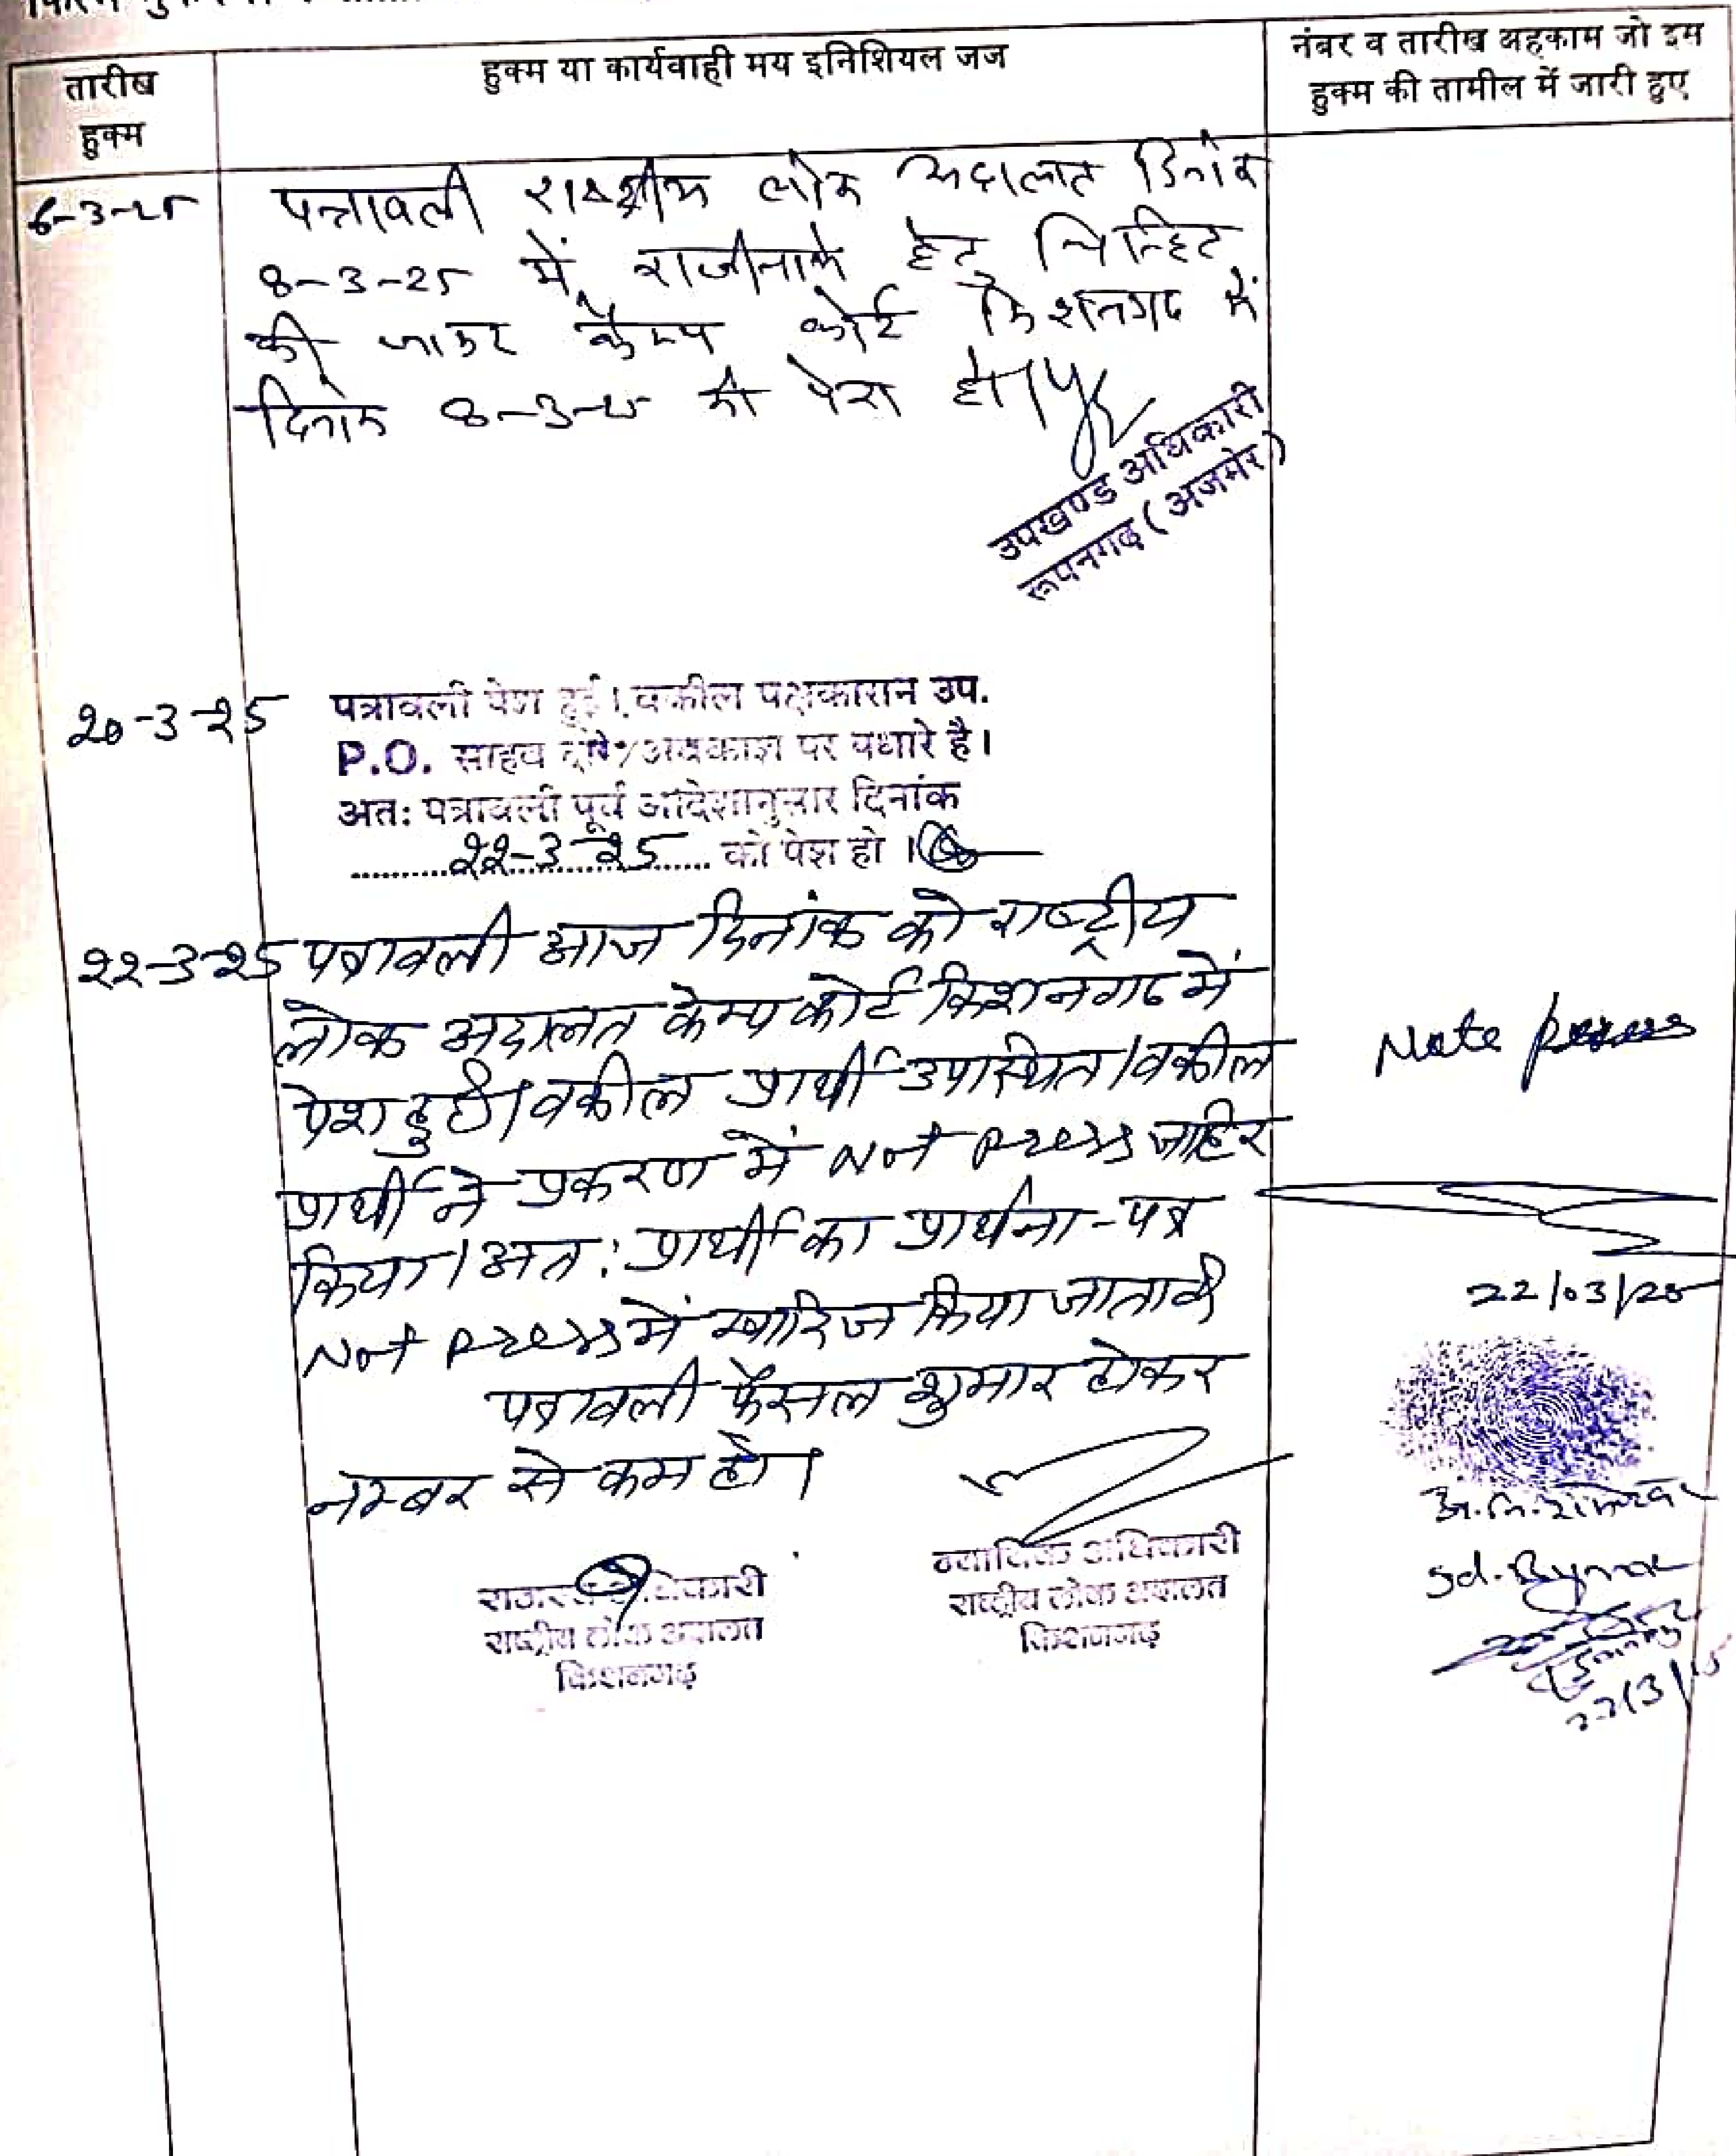 तारीख
हुक्म
हुक्म या कार्यवाही मय इनिशियल जज
नंबर व तारीख अहकाम जो इस
हुक्म की तामील में जारी हुए
6-3-25
पत्रावली राष्ट्रीय लोक अदालत दिनांक
8-3-25 में राजीनामे हेतु चिन्हित
की जाकर कैम्प कोर्ट किशनगढ में
दिनांक 8-3-25 को पेश हो।
उपखण्ड अधिकारी
रूपनगढ़ (अजमेर)
20-3-25
पत्रावली पेश हुई। वकील पक्षकारान उप.
P.O. साहब दौरे/अवकाश पर पधारे है।
अतः पत्रावली पूर्व आदेशानुसार दिनांक
22-3-25 को पेश हो ।
22-3-25 पत्रावली आज दिनांक को राष्ट्रीय
लोक अदालत केम्प कोर्ट किशनगढ में
पेश हुई। वकील प्रार्थी उपस्थित। वकील
प्रार्थी ने प्रकरण में Not Press जाहिर
किया। अतः प्रार्थी का प्रार्थना-पत्र
Not Press में खारिज किया जाता है।
पत्रावली फैसल शुमार होकर
नम्बर से कम हो।
न्यायिक अधिकारी
राष्ट्रीय लोक अदालत
किशनगढ़
राष्ट्रीय लोक अदालत
किशनगढ़
Note press
22/03/25
अ.नि.
Sd.
22/3/25